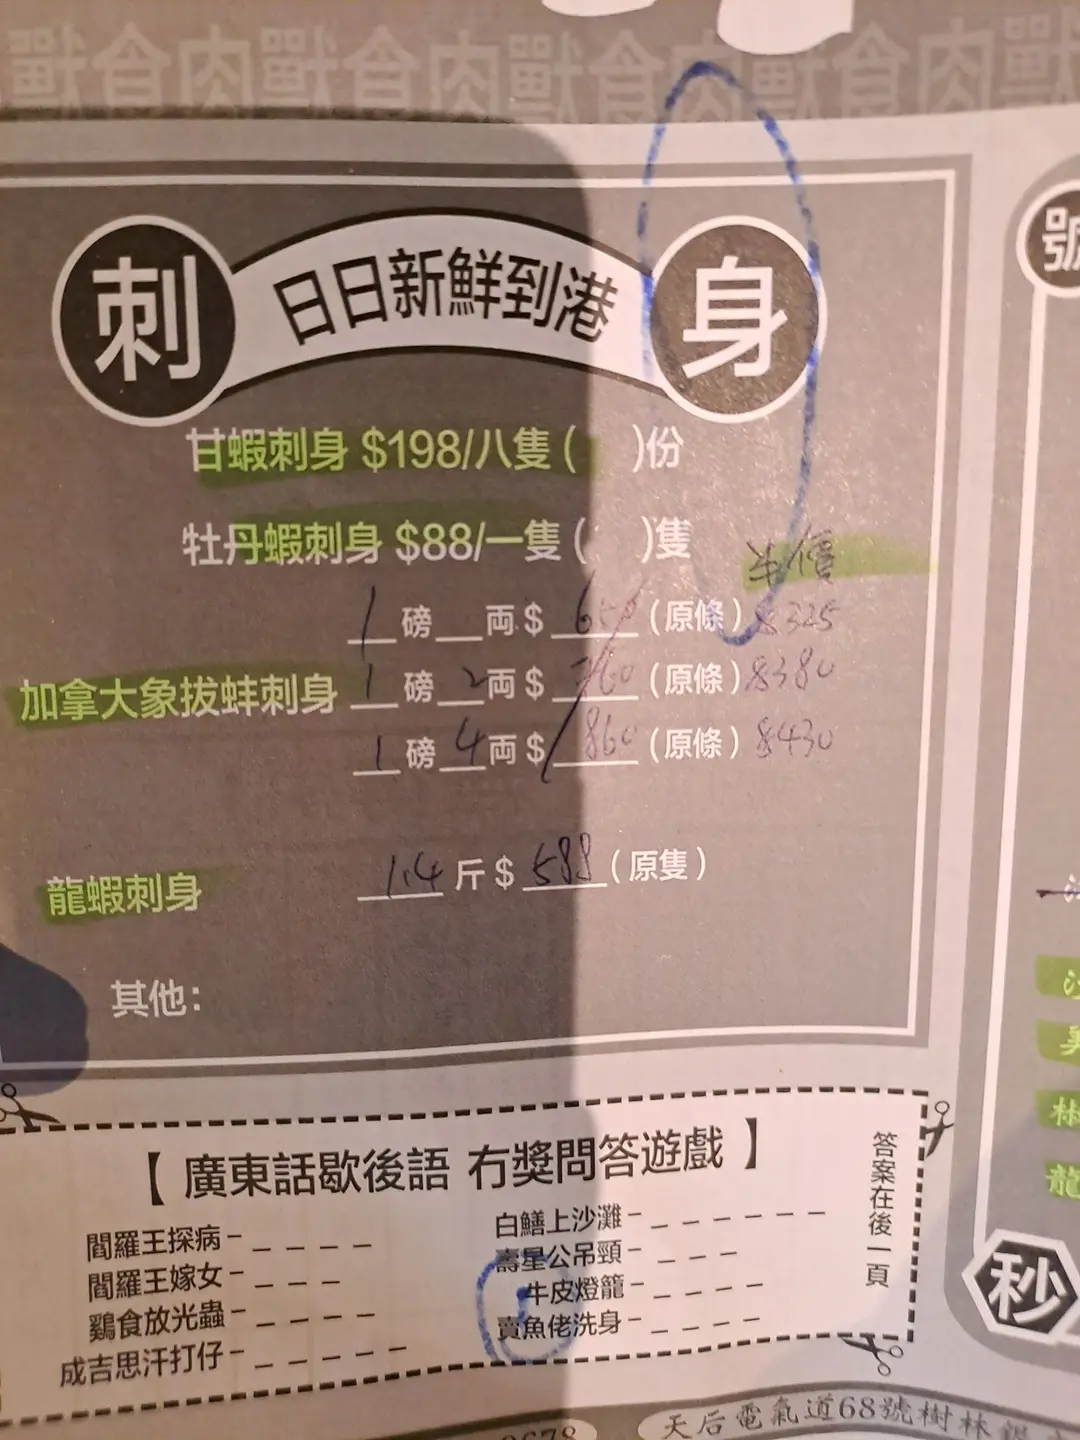 刺 日日新鮮到港 身
號
甘蝦刺身 $198/八隻 ( )份
牡丹蝦刺身 $88/一隻 ( )隻
半價
1 磅 __ 両 $ 650 (原條) $325
加拿大象拔蚌刺身 1 磅 2 両 $ 760 (原條) $380
1 磅 4 両 $ 860 (原條) $430
龍蝦刺身 1.4 斤 $ 588 (原隻)
其他:
龍
【 廣東話歇後語 冇獎問答遊戲 】
答案在後一頁
閻羅王探病- _ _ _ _
閻羅王嫁女- _ _ _
鷄食放光蟲- _ _ _ _
成吉思汗打仔- _ _ _ _ _
白鱔上沙灘- _ _ _ _ _ _
壽星公吊頸- _ _ _
牛皮燈籠- _ _ _ _
賣魚佬洗身- _ _ _ _
秒
天后電氣道68號樹林